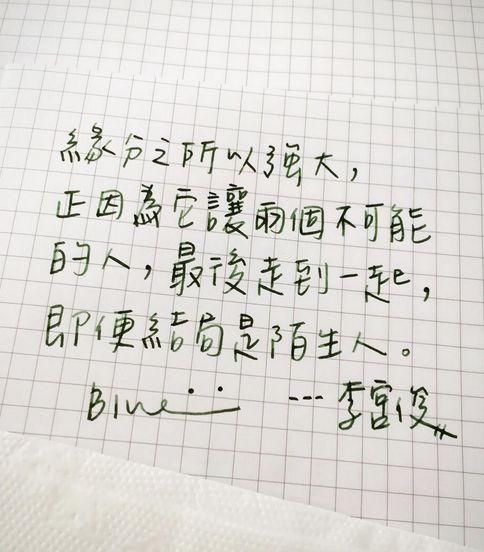 緣分之所以強大，
正因為它讓兩個不可能
的人，最後走到一起，
即便結局是陌生人。
Blue ...李宮俊